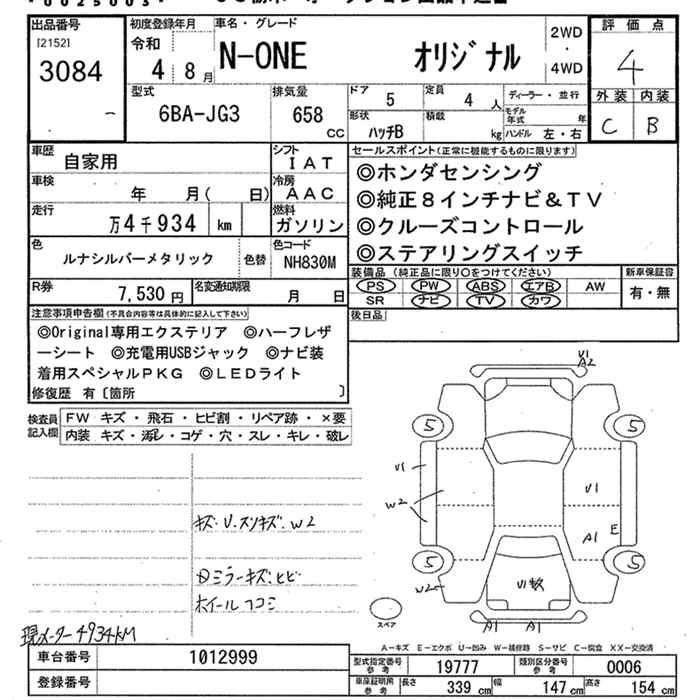 出品番号
[2152]
3084
初度登録年月
令和
4 8月
車名・グレード
N-ONE オリジナル
2WD
・
4WD
評価点
4
外装 内装
C B
型式
6BA-JG3
排気量
658
CC
ドア
5
定員
4 人
ディーラー・並行
形状
ハッチB
積載
kg
モデル年式 年
ハンドル 左・右
車歴
自家用
シフト
IAT
車検
年 月( 日)
冷房
AAC
走行
万4千934 km
燃料
ガソリン
色
ルナシルバーメタリック
色替
色コード
NH830M
R券
7,530円
名変通知期限
月 日
セールスポイント(正常に機能するものに限ります)
◎ホンダセンシング
◎純正8インチナビ&TV
◎クルーズコントロール
◎ステアリングスイッチ
装備品 (純正品に限り○をつけてください)
PS PW ABS エアB AW
SR ナビ TV カワ
新車保証書
有・無
後日品
注意事項申告欄(不具合内容等は具体的に記入して下さい)
◎Original専用エクステリア ◎ハーフレザ
ーシート ◎充電用USBジャック ◎ナビ装
着用スペシャルPKG ◎LEDライト
修復歴 有〔箇所 〕
検査員
記入欄
FW キズ・飛石・ヒビ割・リペア跡・×要
内装 キズ・汚レ・コゲ・穴・スレ・キレ・破レ
キズ・U.スリキズ.W2
ミラーキズ・ヒビ
ホイールフコミ
現メーター4934KM
V1
A2
5
5
V1
W2
U1
A1
E
5
5
W2
A1
A1
スペア
A-キズ E-エクボ U-凹み W-補修跡 S-サビ C-腐食 XX-交換済
車台番号
1012999
登録番号
型式指定番号
参考
19777
類別区分番号
参考
0006
車庫証明用
参考
長さ
339 cm
幅
147 cm
高さ
154 cm